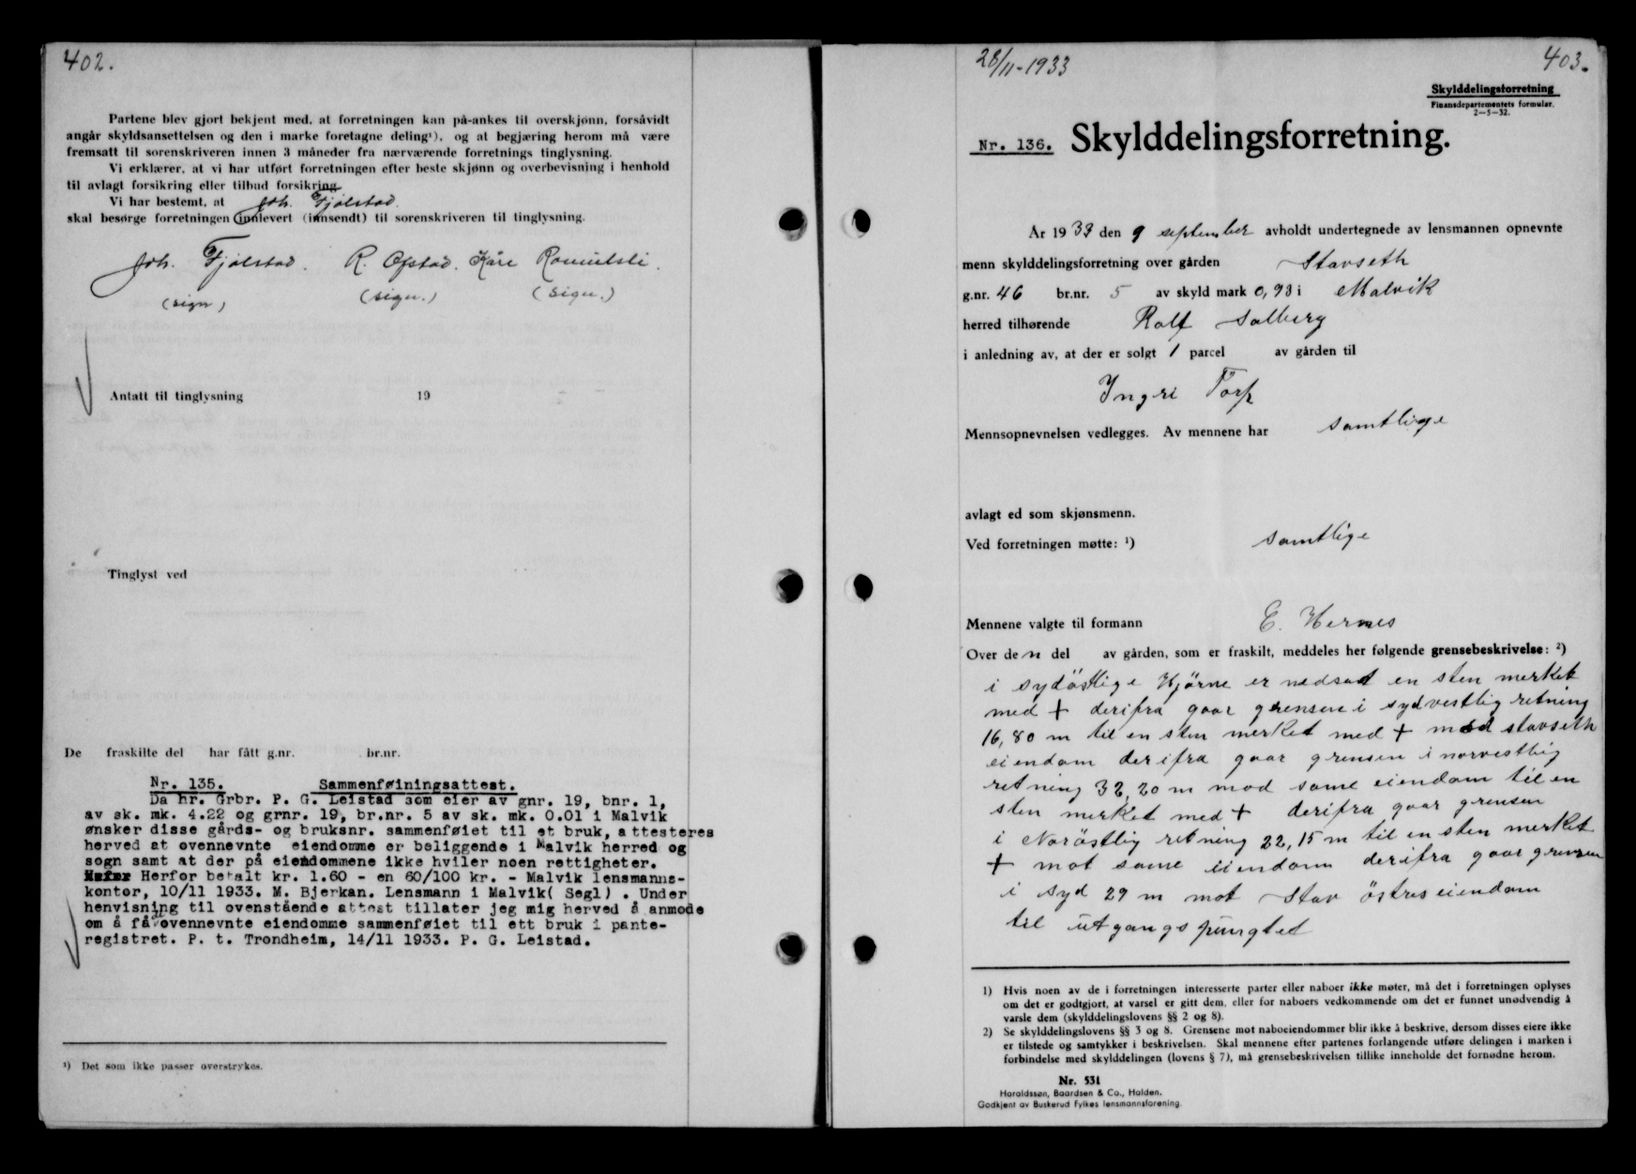 402.
Partene blev gjort bekjent med, at forretningen kan på-ankes til overskjønn, forsåvidt
angår skyldsansettelsen og den i marke foretagne deling¹), og at begjæring herom må være
fremsatt til sorenskriveren innen 3 måneder fra nærværende forretnings tinglysning.
Vi erklærer, at vi har utført forretningen efter beste skjønn og overbevisning i henhold
til avlagt forsikring eller tilbud forsikring
Vi har bestemt, at Joh. Fjølstad.
skal besørge forretningen innlevert (innsendt) til sorenskriveren til tinglysning.
Joh. Fjølstad. R. Opstad. Kåre
(sign) (sign.) (sign.)
Antatt til tinglysning 19
Tinglyst ved
De fraskilte del har fått g.nr. br.nr.
Nr. 135. Sammenføiningsattest.
Da hr. Grbr. P. G. Leistad som eier av gnr. 19, bnr. 1,
av sk. mk. 4.22 og grnr. 19, br.nr. 5 av sk. mk. 0.01 i Malvik
ønsker disse gårds- og bruksnr. sammenføiet til et bruk, attesteres
herved at ovennevnte eiendomme er beliggende i Malvik herred og
sogn samt at der på eiendommene ikke hviler noen rettigheter.
Herfor betalt kr. 1.60 - en 60/100 kr. - Malvik lensmanns-
kontor, 10/11 1933. M. Bjerkan. Lensmann i Malvik( Segl) . Under
henvisning til ovenstående attest tillater jeg mig herved å anmode
om å få ovennevnte eiendomme sammenføiet til ett bruk i pante-
registret. P. t. Trondheim, 14/11 1933. P. G. Leistad.
¹) Det som ikke passer overstrykes.
28/11-1933
403.
Skylddelingsforretning
Finansdepartementets formular.
2-5-32.
Nr. 136. Skylddelingsforretning.
År 1933 den 9 september avholdt undertegnede av lensmannen opnevnte
menn skylddelingsforretning over gården Stavseth
g.nr. 46 br.nr. 5 av skyld mark 0,93 i Malvik
herred tilhørende Rolf Solberg
i anledning av, at der er solgt 1 parcel av gården til
Ingri Torp
Mennsopnevnelsen vedlegges. Av mennene har samtlige
avlagt ed som skjønsmenn.
Ved forretningen møtte: ¹) samtlige
Mennene valgte til formann E. Hernes
Over den del av gården, som er fraskilt, meddeles her følgende grensebeskrivelse: ²)
i sydöstlige Hjörne er nedsat en sten merket
med + derifra gaar grensen i sydvestlig retning
16,80 m til en sten merket med + mod stavseth
eiendom derifra gaar grensen i norvestlig
retning 32,20 m mod same eiendom til en
sten merket med + derifra gaar grensen
i Noröstlig retning 22,15 m til en sten merket
+ mot same eiendom derifra gaar grensen
i syd 29 m mot Stav östres eiendom
til utgangspungtet
1) Hvis noen av de i forretningen interesserte parter eller naboer ikke møter, må det i forretningen oplyses
om det er godtgjort, at varsel er gitt dem, eller for naboers vedkommende om det er funnet unødvendig å
varsle dem (skylddelingslovens §§ 2 og 8).
2) Se skylddelingslovens §§ 3 og 8. Grensene mot naboeiendommer blir ikke å beskrive, dersom disses eiere ikke
er tilstede og samtykker i beskrivelsen. Skal mennene efter partenes forlangende utføre delingen i marken i
forbindelse med skylddelingen (lovens § 7), må grensebeskrivelsen tillike inneholde det fornødne herom.
Nr. 531
Haraldssøn, Baardsen & Co., Halden.
Godkjent av Buskerud Fylkes lensmannsforening.